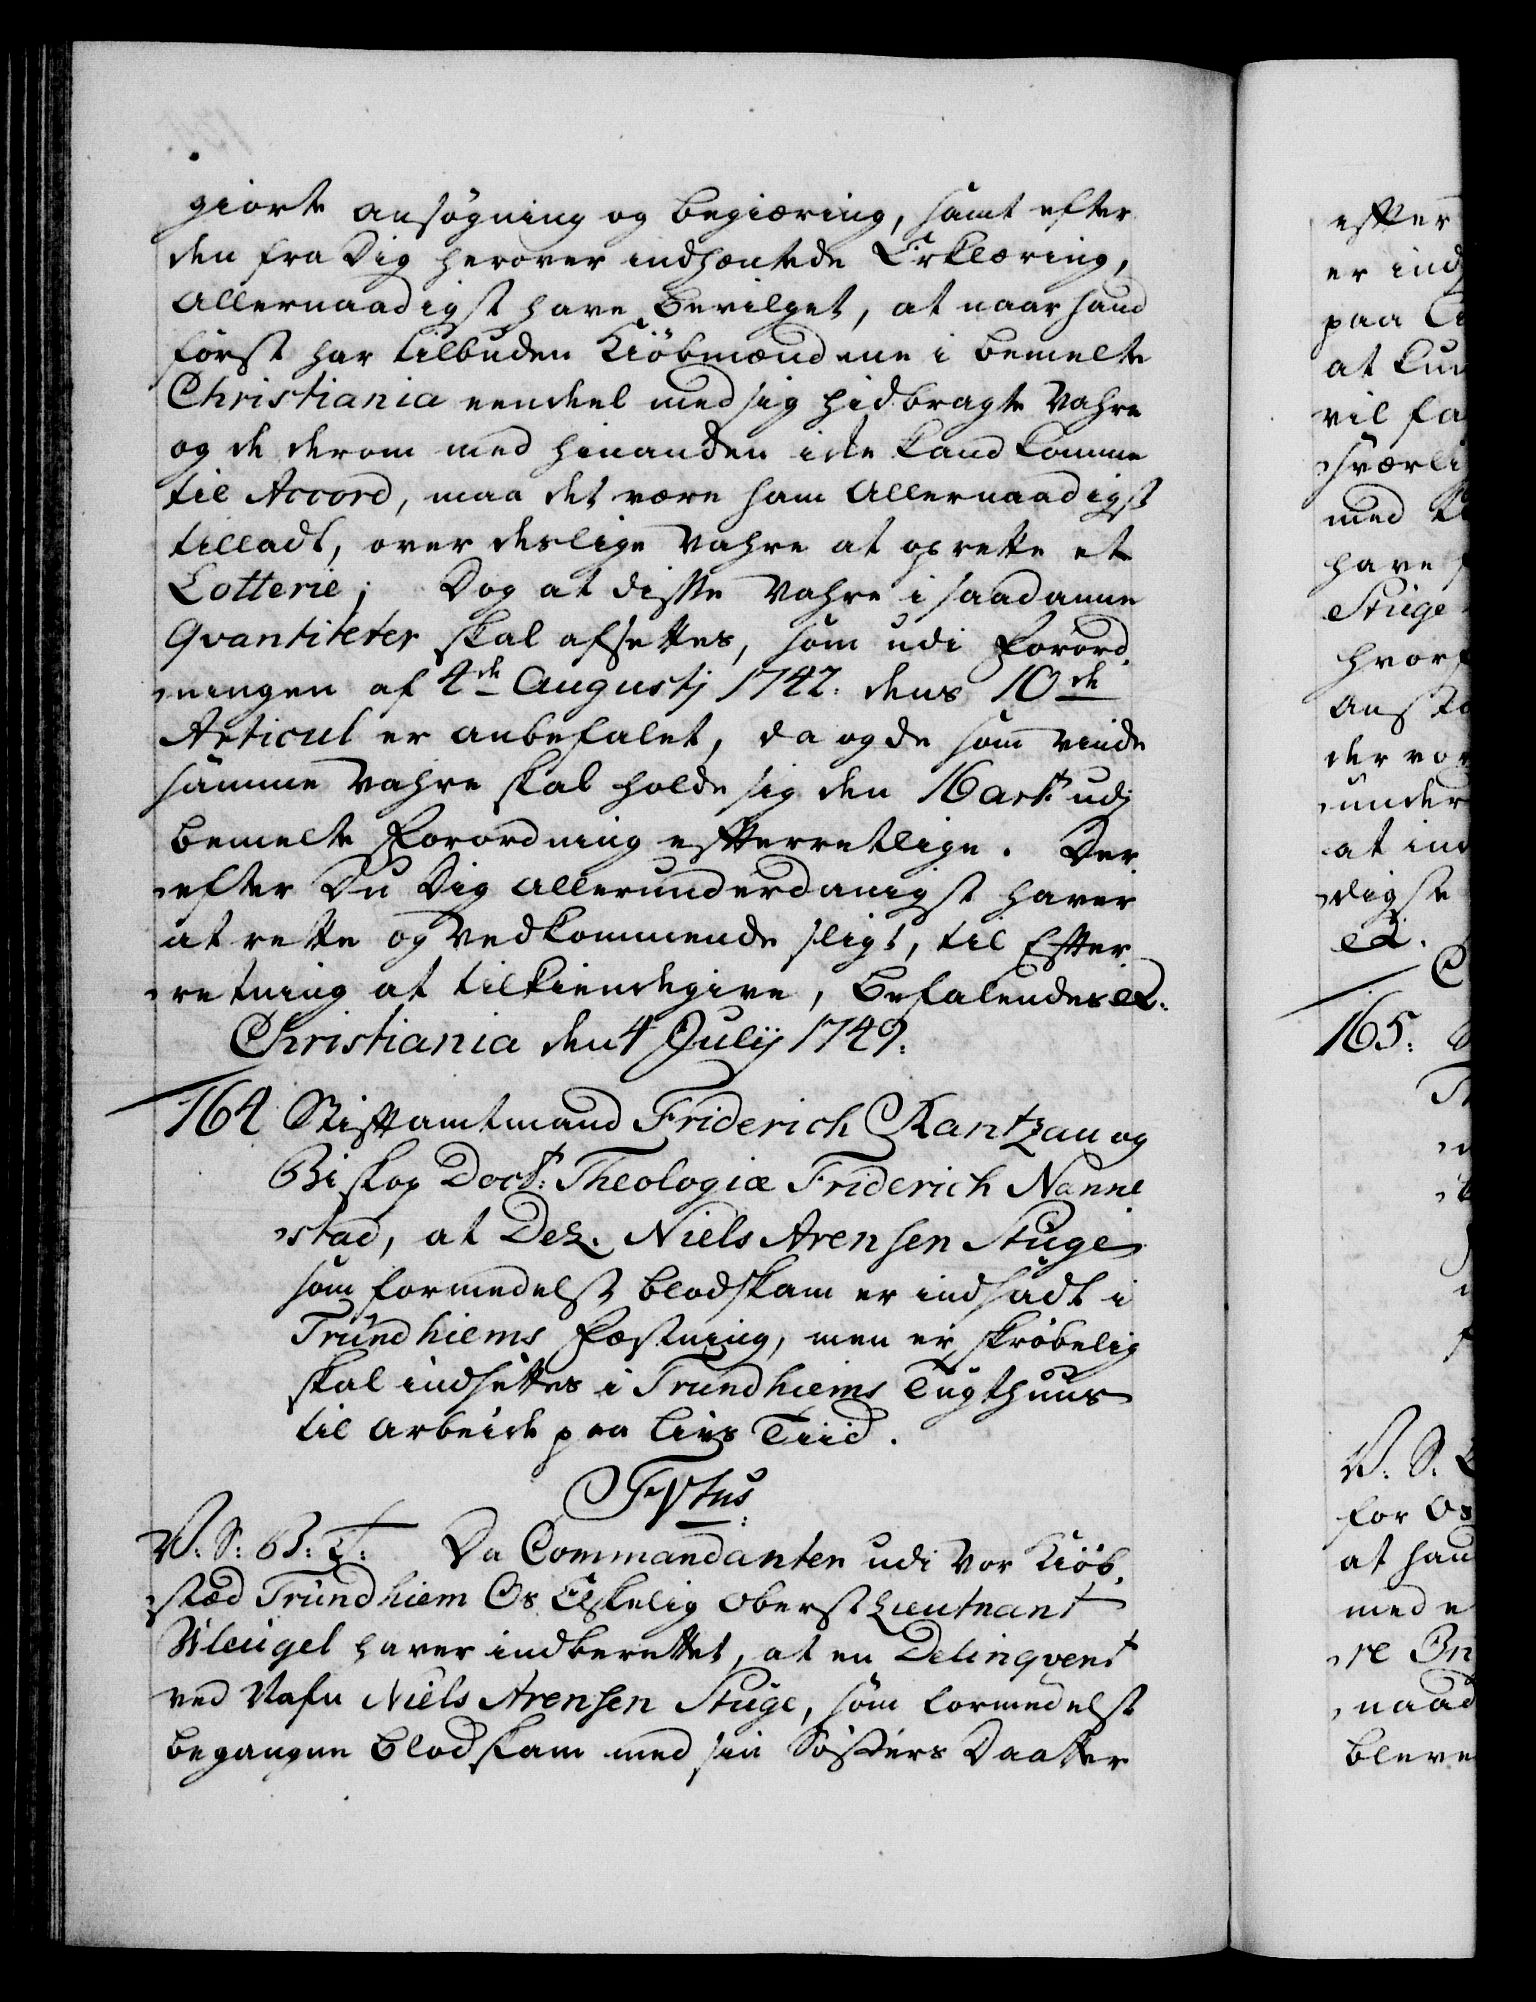 giorte ansøgning og begiæring, samt efter
den fra Dig herover indhæntede Erklæring,
Allernaadigst have bevilget, at naar hand
først har tilbuden Kiøbmændene i bemelte
Christiania eendeel med sig hidbragte Vahre
og de derom med hinanden icke kand komme
til Accord, maa det være ham Allernaadigst
tilladt, over deslige Vahre at oprette et
Lotterie; Dog at disse Vahre i saadanne
Qvantiteter skal afsettes, som udi Forord-
ningen af 4de Augustj 1742. dens 10de
Articul er anbefalet, da og de som vinde
samme Vahre skal holde sig den 16 art: udj
bemelte Forordning efterretlige. Der-
efter Du Dig allerunderdanigst haver
at rette og Vedkommende sligt, til Efter-
retning at tilkiendegive, Befalendes etc.
Christiania den 4 Julij 1749.
164 Stiftamtmand Friderich Rantzau og
Biskop Doct: Theologiæ Friderich Nanne-
stad, at Del: Niels Arensen Stuge
som formedelst blodskam er indsadt i
Trundhiems Fæstning, men er skrøbelig
skal indsettes i Trundhiems Tugthuus
til Arbeide paa Livs Tiid.
Textus:
V: S: B: T: Da Commandanten udi Vor Kiøb-
stæd Trundhiem Os Elskelig Oberstlieutnant
Wleugel haver indberettet, at en Delinqvent
ved Nafn Niels Arensen Stuge, som formedelst
begangne Blodskam med sin Søsters Daatter
efter
165: